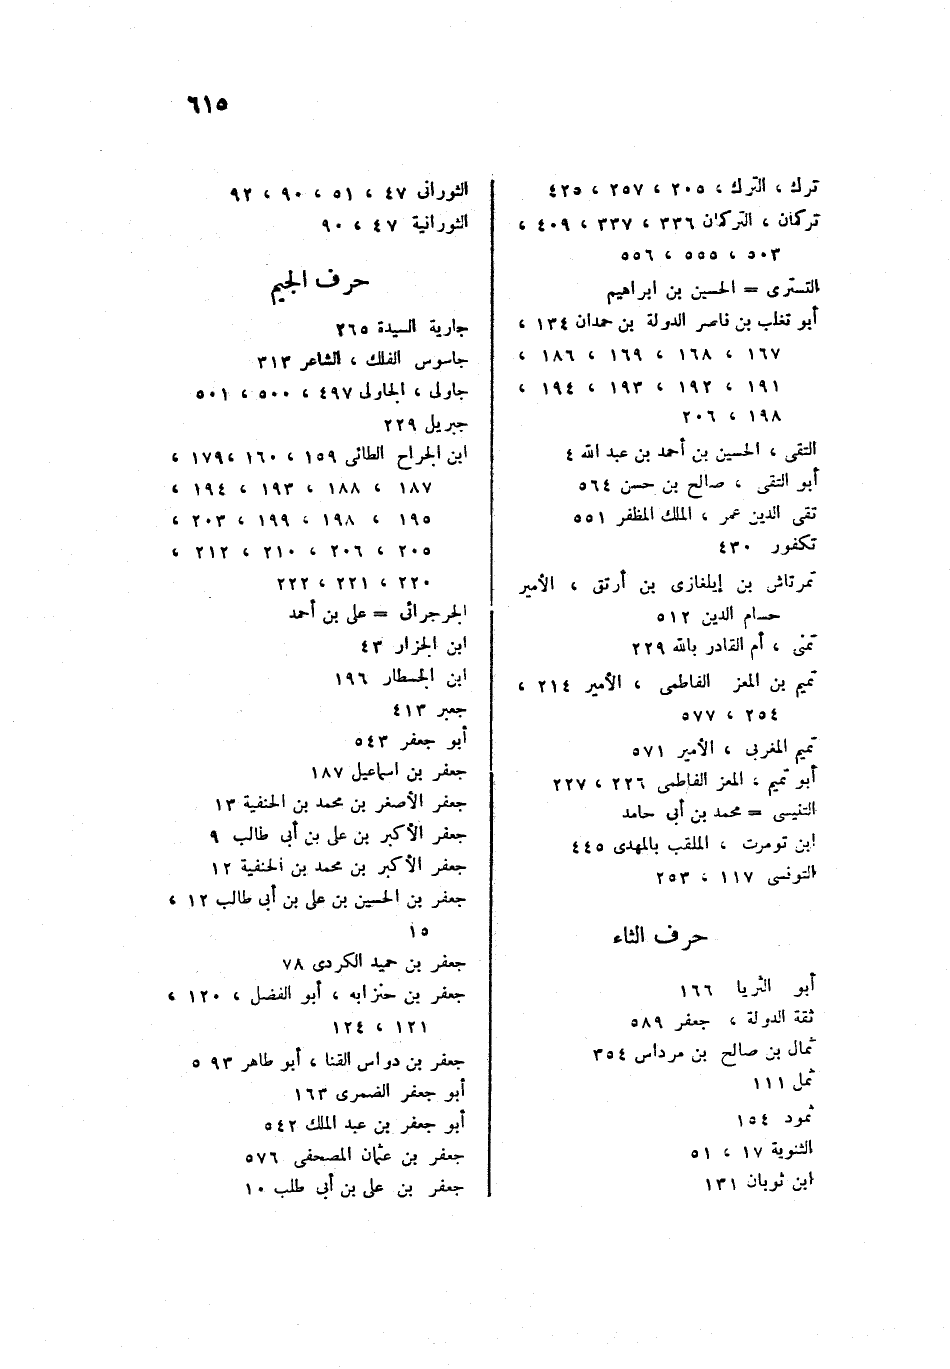 ٦١٥
ترك ، الترك ، ٢٠٥ ، ٢٥٧ ، ٤٢٥
تركمان ، التركمان ٣٣٦ ، ٣٣٧ ، ٤٠٩ ،
٥٠٣ ، ٥٥٥ ، ٥٥٦
التسترى = الحسين بن ابراهيم
أبو تغلب بن ناصر الدولة بن حمدان ١٣٤ ،
١٦٧ ، ١٦٨ ، ١٦٩ ، ١٨٦ ،
١٩١ ، ١٩٢ ، ١٩٣ ، ١٩٤ ،
١٩٨ ، ٢٠٦
التقى ، الحسين بن أحمد بن عبد الله ٤
أبو التقى ، صالح بن حسن ٥٦٤
تقى الدين عمر ، الملك المظفر ٥٥١
تكفور ٤٣٠
تمرتاش بن إيلغازى بن أرتق ، الأمير
حسام الدين ٥١٢
تمنى ، أم القادر بالله ٢٢٩
تميم بن المعز الفاطمى ، الأمير ٢١٤ ،
٢٥٤ ، ٥٧٧
تميم المغربى ، الأمير ٥٧١
أبو تميم ، المعز الفاطمى ٢٢٦ ، ٢٢٧
التنيسى = محمد بن أبى حامد
ابن تومرت ، الملقب بالمهدى ٤٤٥
التونسى ١١٧ ، ٢٥٣
حرف الثاء
أبو الثريا ١٦٦
ثقة الدولة ، جعفر ٥٨٩
ثمال بن صالح بن مرداس ٣٥٤
ثمل ١١١
ثمود ١٥٤
الثنوية ١٧ ، ٥١
ابن ثوبان ١٣١
الثورانى ٤٧ ، ٥١ ، ٩٠ ، ٩٢
الثورانية ٤٧ ، ٩٠
حرف الجيم
جارية السيدة ٢٦٥
جاسوس الفلك ، الشاعر ٣١٣
جاولى ، الجاولى ٤٩٧ ، ٥٠٠ ، ٥٠١
جبريل ٢٢٩
ابن الجراح الطائى ١٥٩ ، ١٦٠ ، ١٧٩ ،
١٨٧ ، ١٨٨ ، ١٩٣ ، ١٩٤ ،
١٩٥ ، ١٩٨ ، ١٩٩ ، ٢٠٣ ،
٢٠٥ ، ٢٠٦ ، ٢١٠ ، ٢١٢ ،
٢٢٠ ، ٢٢١ ، ٢٢٢
الجرجرائى = على بن أحمد
ابن الجزار ٤٣
ابن الجسطار ١٩٦
جعبر ٤١٣
أبو جعفر ٥٤٣
جعفر بن اسماعيل ١٨٧
جعفر الأصغر بن محمد بن الحنفية ١٣
جعفر الأكبر بن على بن أبى طالب ٩
جعفر الأكبر بن محمد بن الحنفية ١٢
جعفر بن الحسين بن على بن أبى طالب ١٢ ،
١٥
جعفر بن حميد الكردى ٧٨
جعفر بن حنزابه ، أبو الفضل ، ١٢٠ ،
١٢١ ، ١٢٤
جعفر بن دواس القنا ، أبو طاهر ٥٩٣
أبو جعفر الضمرى ١٦٣
أبو جعفر بن عبد الملك ٥٤٢
جعفر بن عثمان المصحفى ٥٧٦
جعفر بن على بن أبى طلب ١٠